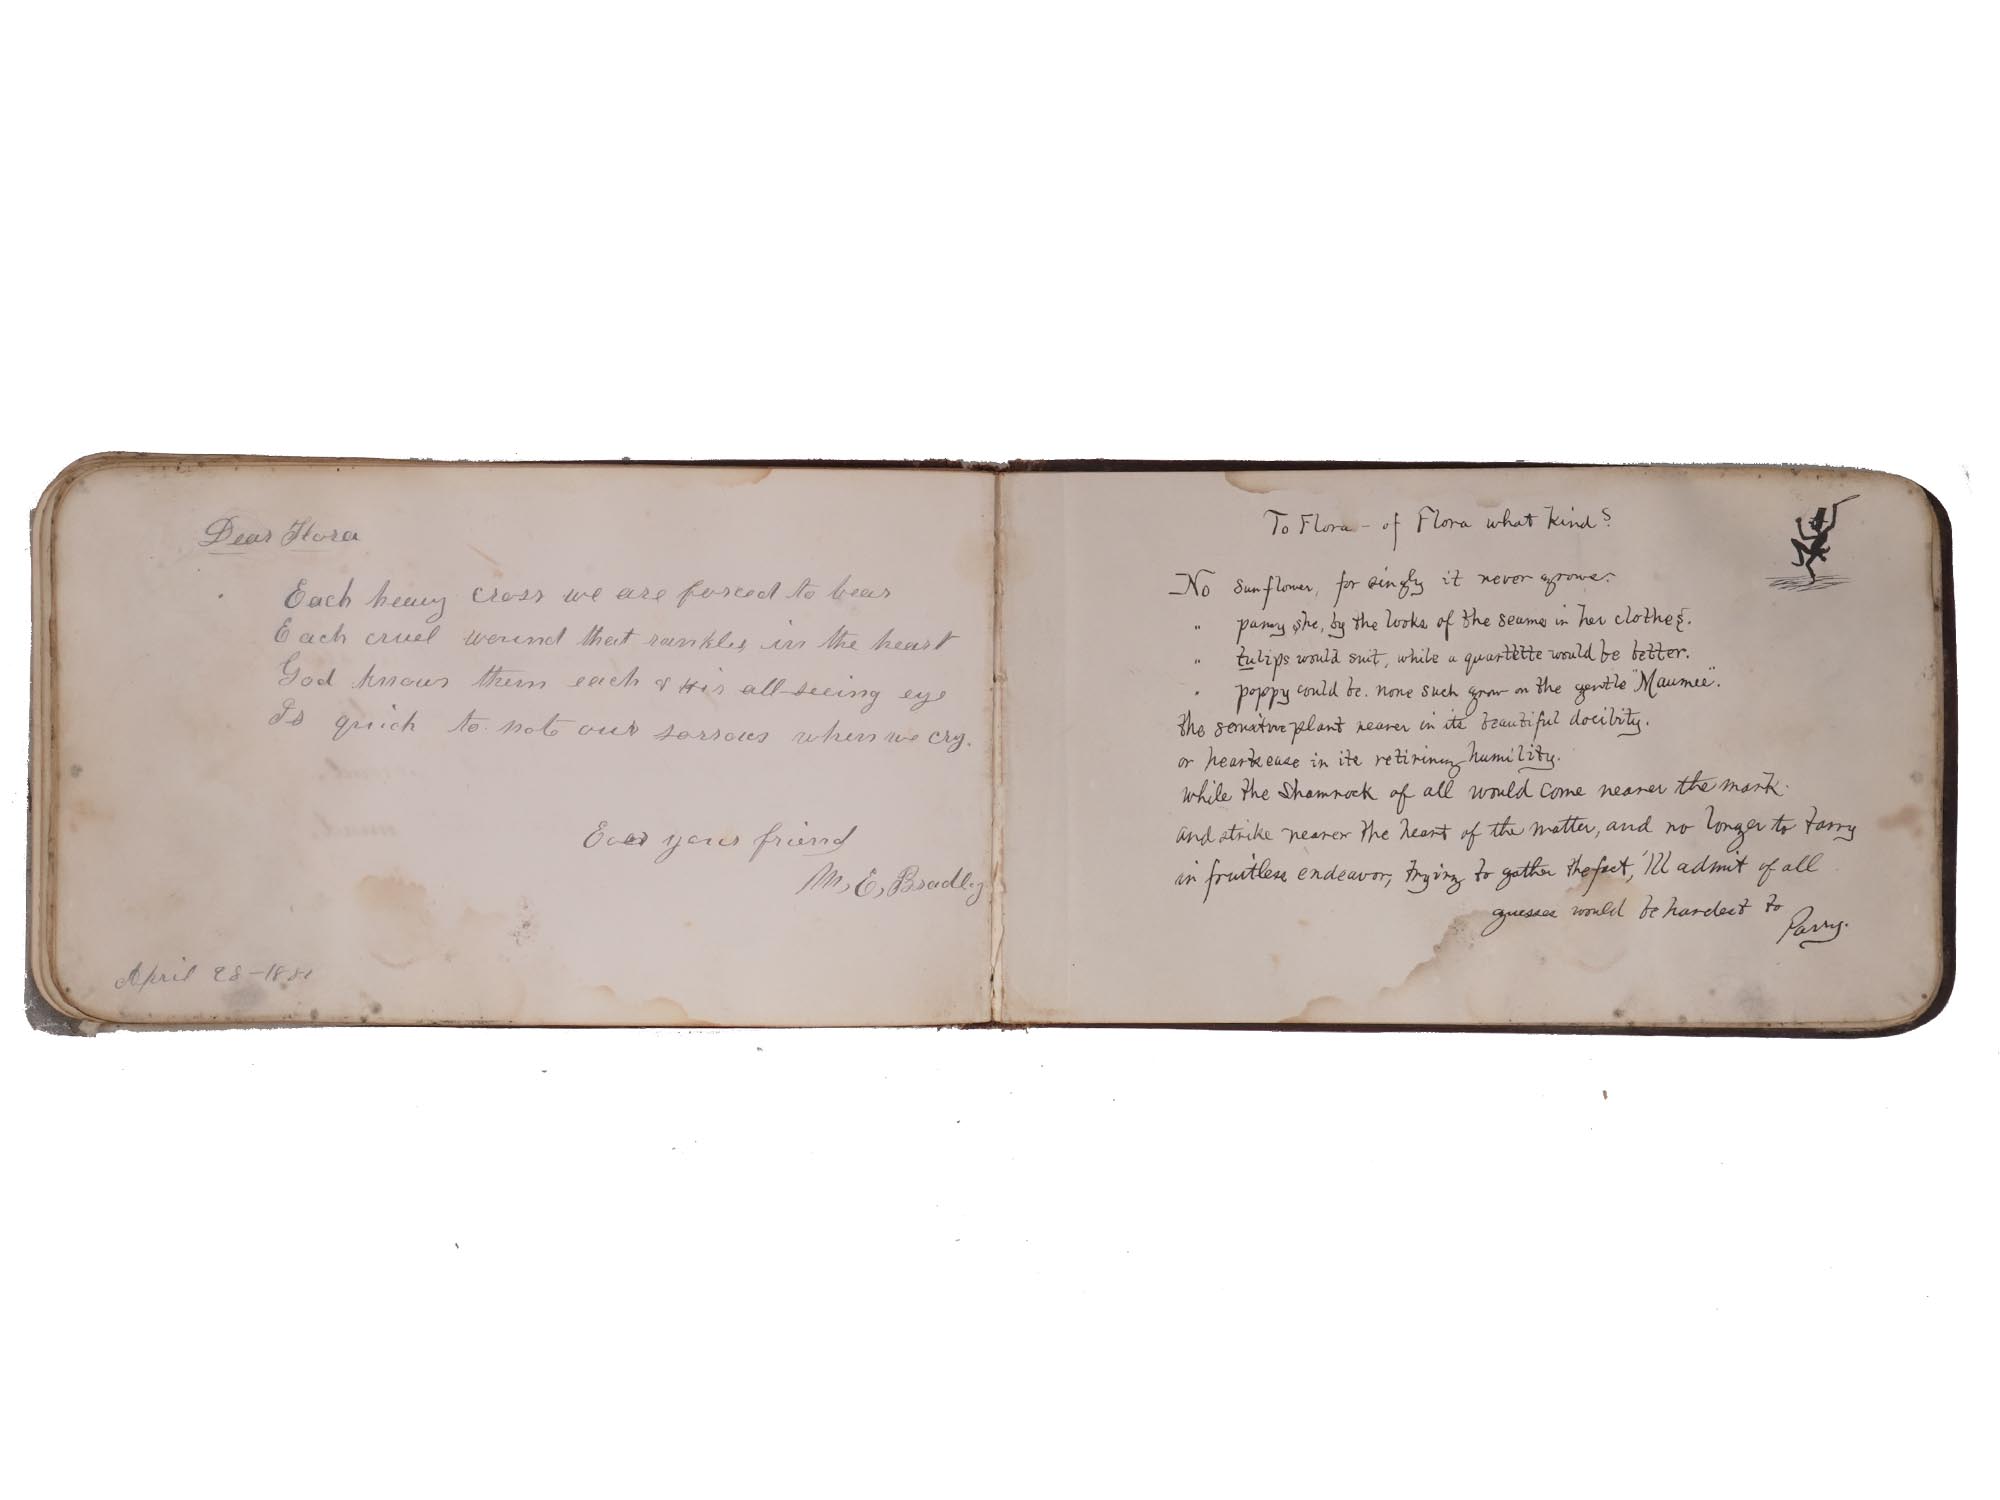 Dear Flora
Each heavy cross we are forced to bear
Each cruel wound that rankles in the heart
God knows them each & His all-seeing eye
Is quick to note our sorrows when we cry.
Ever your friend
M. E. Bradley
April 28-1881
To Flora - of Flora what kind?
No sunflower, for singly it never grows.
" pansy she, by the looks of the seams in her clothes.
" tulips would suit, while a quartette would be better.
" poppy could be. none such grow on the gentle "Maumee".
the sensative plant nearer in its beautiful docility.
or heartsease in its retiring humility.
while the Shamrock of all would come nearer the mark.
and strike nearer the heart of the matter, and no longer to tarry
in fruitless endeavor, trying to gather the fact, I'll admit of all
guesses would be hardest to
Parry.